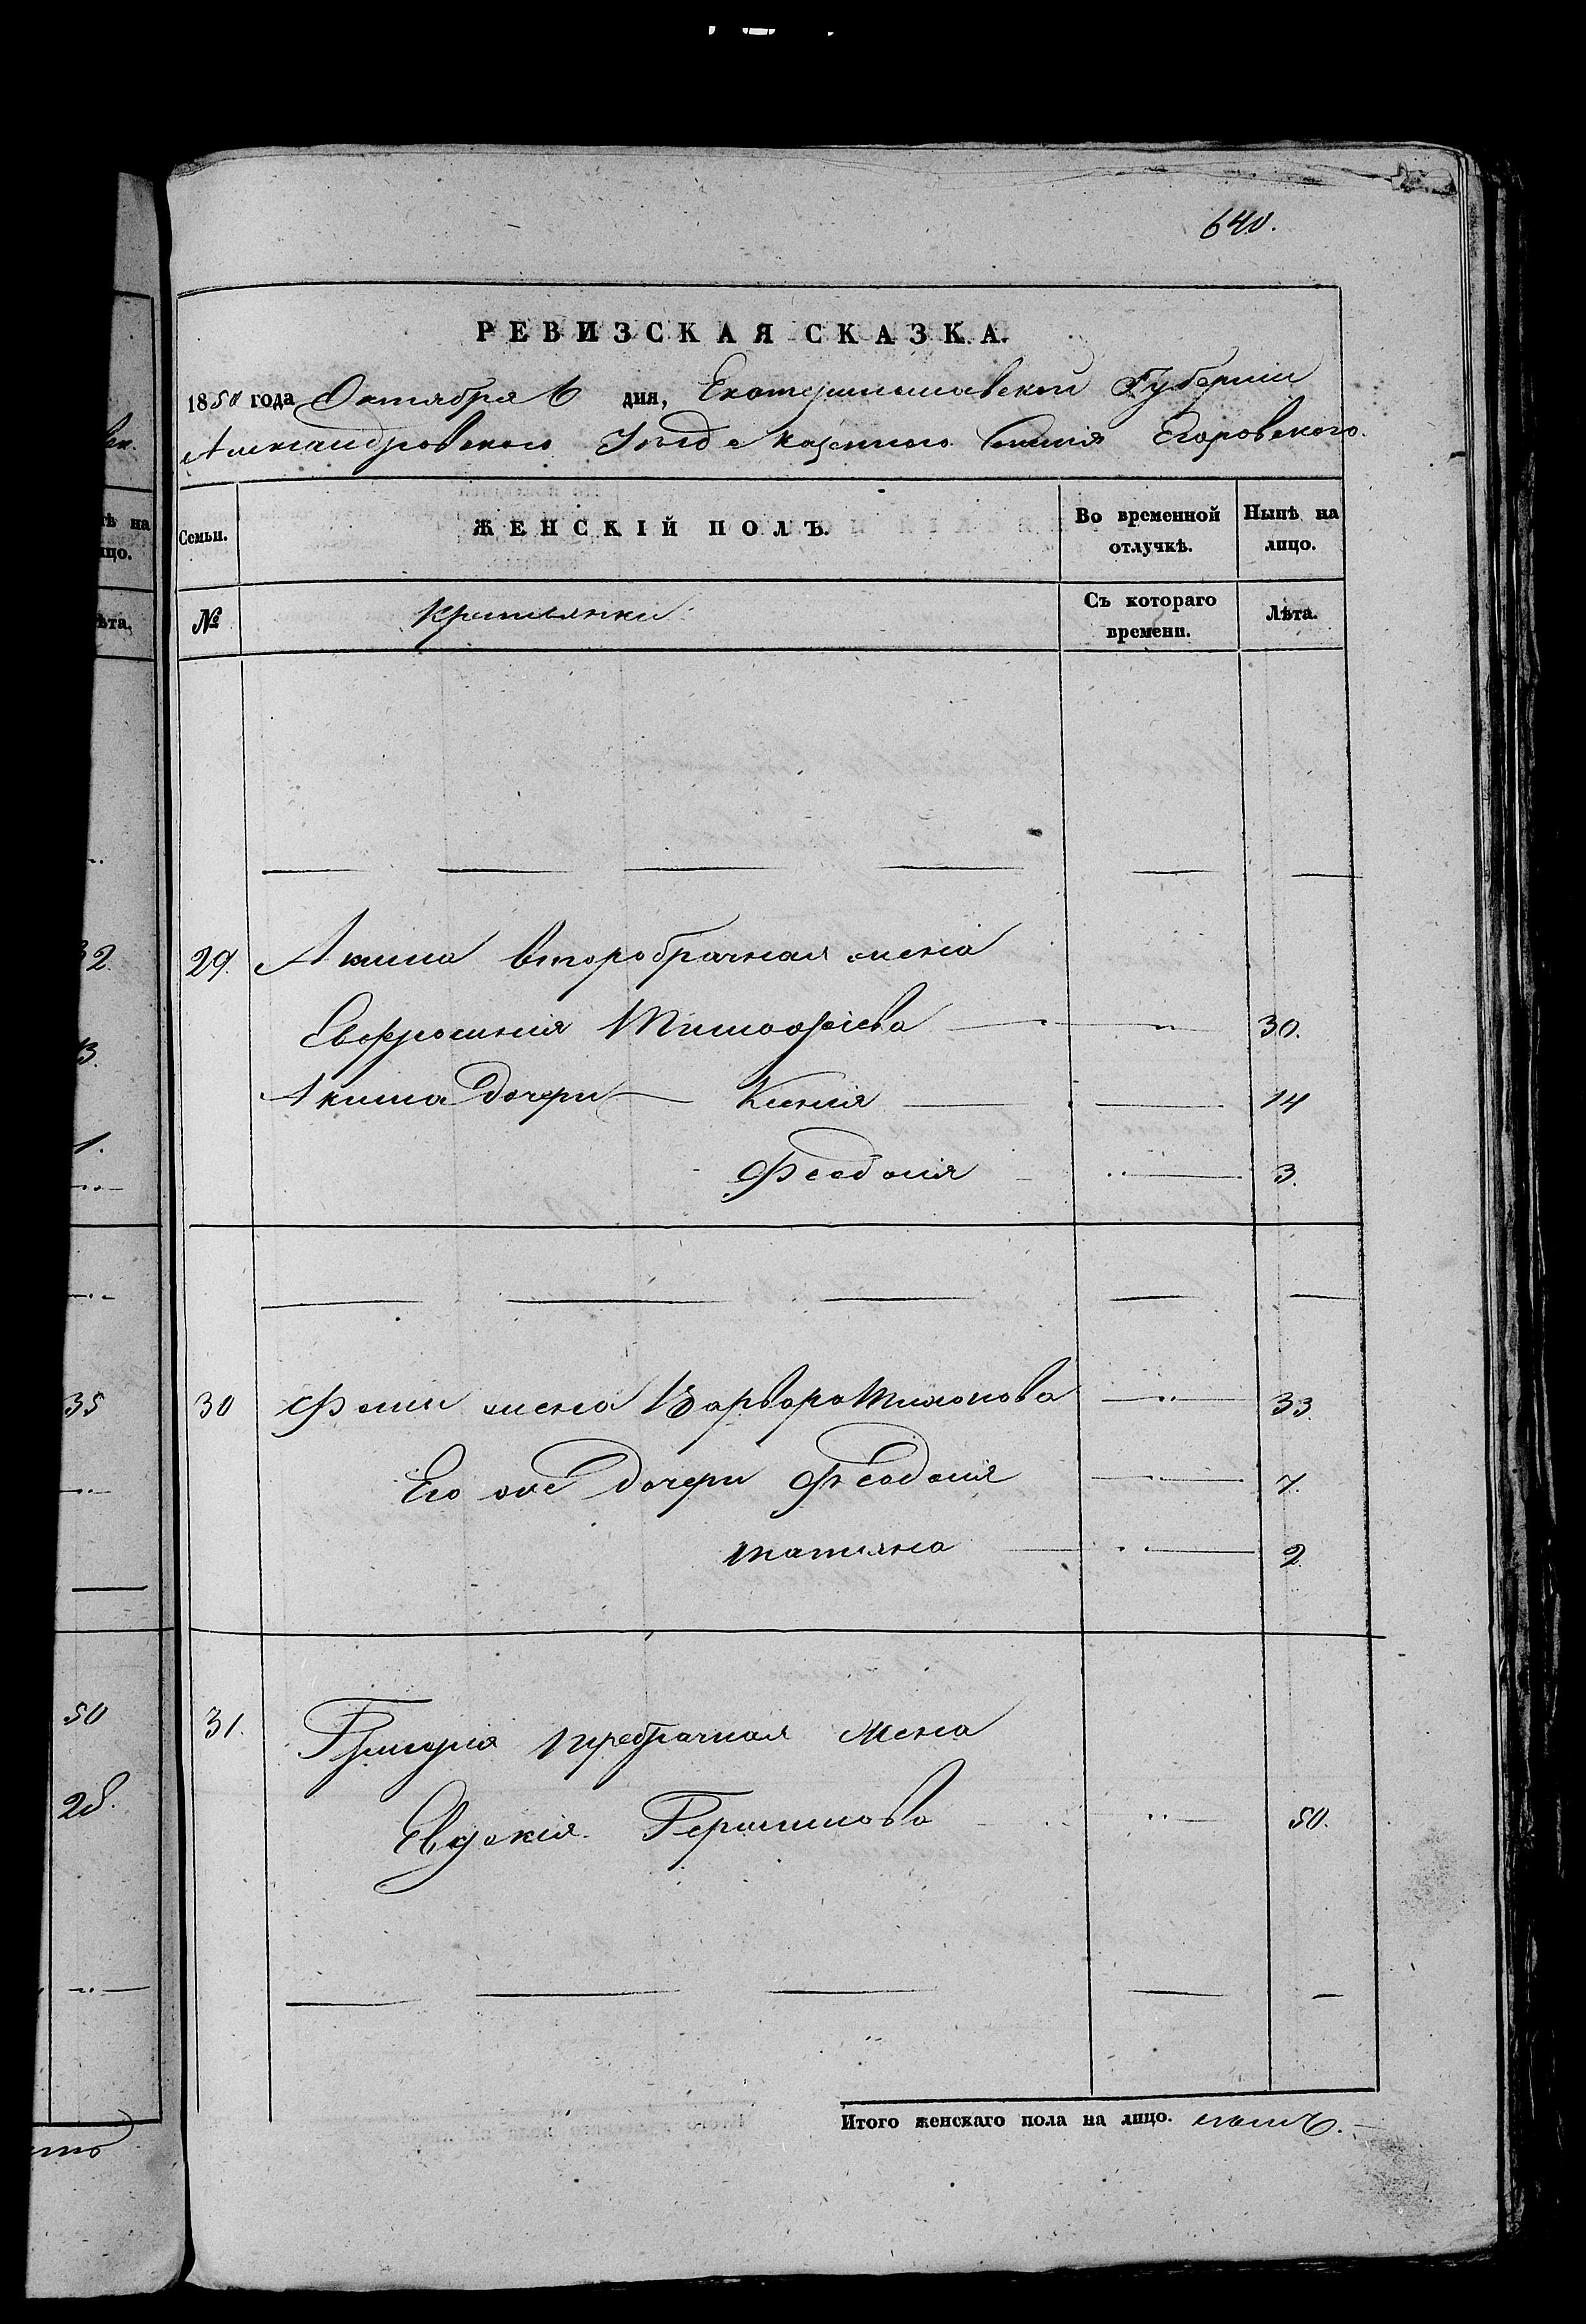 640.
РЕВИЗСКАЯ СКАЗКА.
1850 года Октября 6 дня, Екатеринославской Губернии
Александровского Уезда казенного селения Егоровского.
Семьи. ЖЕНСКІЙ ПОЛЪ. Во временной отлучкѣ. Нынѣ на лицо.
№ Крестьянки Съ котораго времени. Лѣта.
29. Акима второбрачная жена
Евфросиния Тимофиева 30.
Акима дочери Ксения 14
Феодосия 3.
30 Фомы жена Варвара 33.
Его же дочери Феодосия 7.
Татияна 2
31. Григория требрачная жена
Евдокия Герасимова 50.
Итого женскаго пола на лицо.
тѣ на
ицо.
ѣта.
32.
3.
1.
35
50
28.